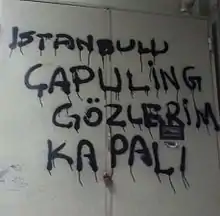 İSTANBULU
ÇAPULİNG
GÖZLERİM
KAPALI